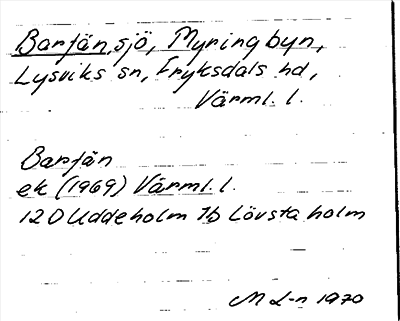 Barfän, sjö, Myringbyn,
Lysviks sn, Fryksdals hd,
Värml. l.
Barfän
ek (1969) Värml. l.
12 D Uddeholm 1b Lövsta holm
M L-n 1970